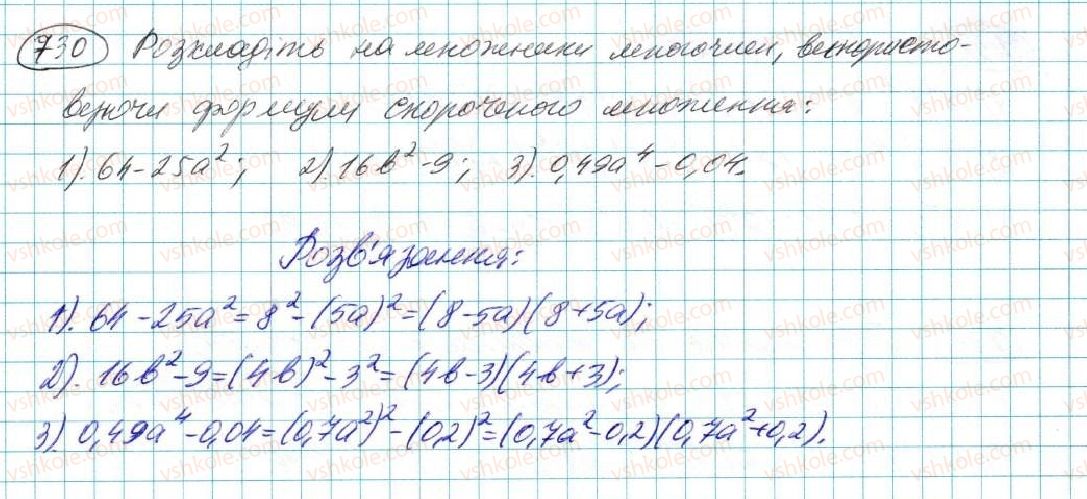 730 Розкладіть на множники многочлен, використо-
вуючи формули скороченого множення:
1). 64-25a²; 2). 16b²-9; 3). 0,49a⁴-0,04.
Розв'язання:
1). 64-25a²=8²-(5a)²=(8-5a)(8+5a);
2). 16b²-9=(4b)²-3²=(4b-3)(4b+3);
3). 0,49a⁴-0,04=(0,7a²)²-(0,2)²=(0,7a²-0,2)(0,7a²+0,2).